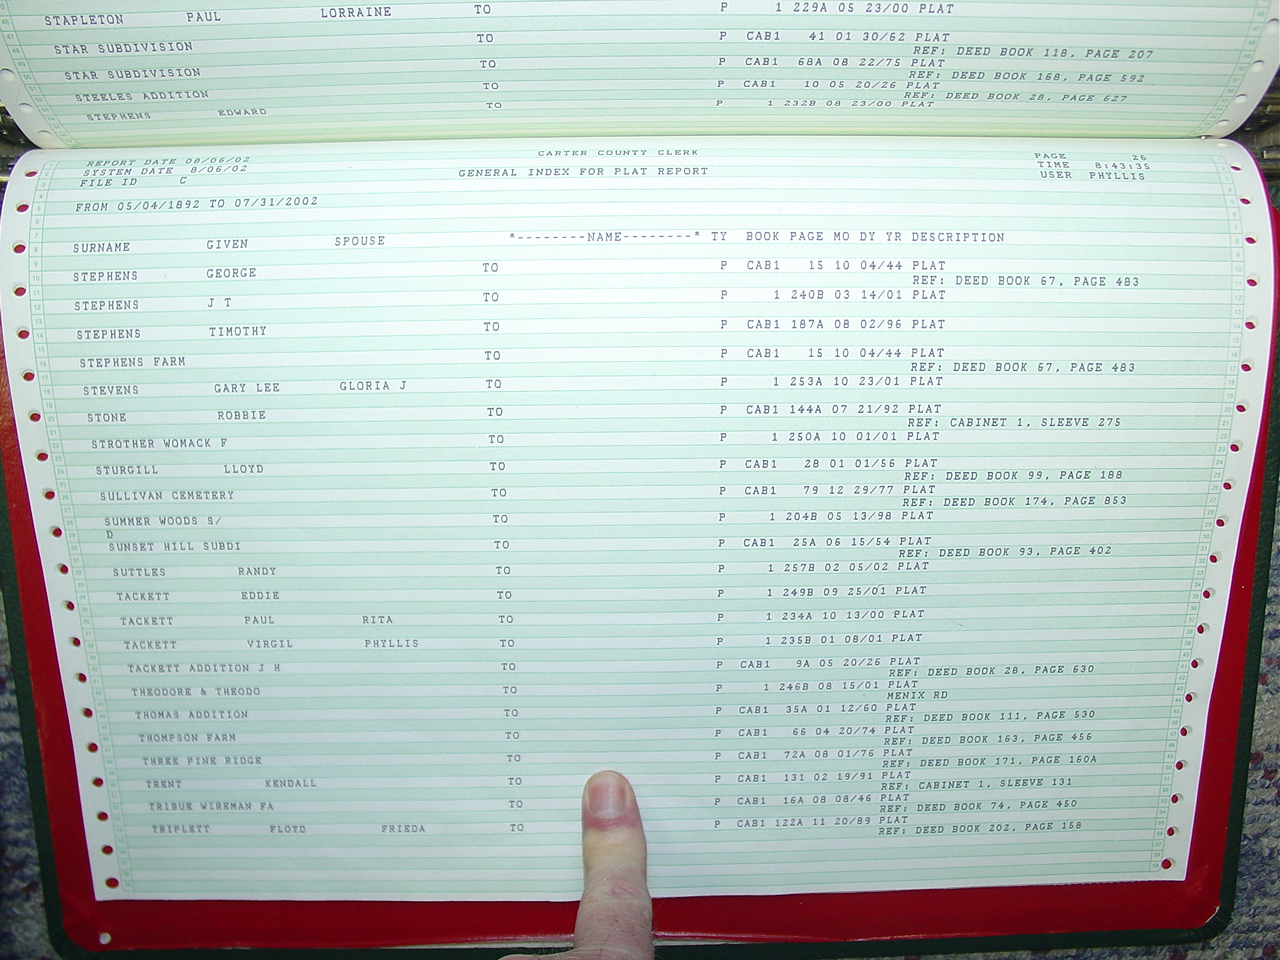 STAPLETON PAUL LORRAINE TO P 1 229A 05 23/00 PLAT
STAR SUBDIVISION TO P CAB1 41 01 30/62 PLAT
REF: DEED BOOK 118, PAGE 207
STAR SUBDIVISION TO P CAB1 68A 08 22/75 PLAT
REF: DEED BOOK 168, PAGE 592
STEELES ADDITION TO P CAB1 10 05 20/26 PLAT
REF: DEED BOOK 28, PAGE 627
STEPHENS EDWARD TO P 1 232B 08 23/00 PLAT
REPORT DATE 08/06/02 CARTER COUNTY CLERK PAGE 26
SYSTEM DATE 8/06/02 GENERAL INDEX FOR PLAT REPORT TIME 8:43:35
FILE ID C USER PHYLLIS
FROM 05/04/1892 TO 07/31/2002
SURNAME GIVEN SPOUSE *--------NAME--------* TY BOOK PAGE MO DY YR DESCRIPTION
STEPHENS GEORGE TO P CAB1 15 10 04/44 PLAT
REF: DEED BOOK 67, PAGE 483
STEPHENS J T TO P 1 240B 03 14/01 PLAT
STEPHENS TIMOTHY TO P CAB1 187A 08 02/96 PLAT
STEPHENS FARM TO P CAB1 15 10 04/44 PLAT
REF: DEED BOOK 67, PAGE 483
STEVENS GARY LEE GLORIA J TO P 1 253A 10 23/01 PLAT
STONE ROBBIE TO P CAB1 144A 07 21/92 PLAT
REF: CABINET 1, SLEEVE 275
STROTHER WOMACK F TO P 1 250A 10 01/01 PLAT
STURGILL LLOYD TO P CAB1 28 01 01/56 PLAT
REF: DEED BOOK 99, PAGE 188
SULLIVAN CEMETERY TO P CAB1 79 12 29/77 PLAT
REF: DEED BOOK 174, PAGE 853
SUMMER WOODS S/ TO P 1 204B 05 13/98 PLAT
D
SUNSET HILL SUBDI TO P CAB1 25A 06 15/54 PLAT
REF: DEED BOOK 93, PAGE 402
SUTTLES RANDY TO P 1 257B 02 05/02 PLAT
TACKETT EDDIE TO P 1 249B 09 25/01 PLAT
TACKETT PAUL RITA TO P 1 234A 10 13/00 PLAT
TACKETT VIRGIL PHYLLIS TO P 1 235B 01 08/01 PLAT
TACKETT ADDITION J H TO P CAB1 9A 05 20/26 PLAT
REF: DEED BOOK 28, PAGE 630
THEODORE & THEODO TO P 1 246B 08 15/01 PLAT
MENIX RD
THOMAS ADDITION TO P CAB1 35A 01 12/60 PLAT
REF: DEED BOOK 111, PAGE 530
THOMPSON FARM TO P CAB1 66 04 20/74 PLAT
REF: DEED BOOK 163, PAGE 456
THREE PINE RIDGE TO P CAB1 72A 08 01/76 PLAT
REF: DEED BOOK 171, PAGE 160A
TRENT KENDALL TO P CAB1 131 02 19/91 PLAT
REF: CABINET 1, SLEEVE 131
TRIBUE WIREMAN FA TO P CAB1 16A 08 08/46 PLAT
REF: DEED BOOK 74, PAGE 450
TRIPLETT FLOYD FRIEDA TO P CAB1 122A 11 20/89 PLAT
REF: DEED BOOK 202, PAGE 158